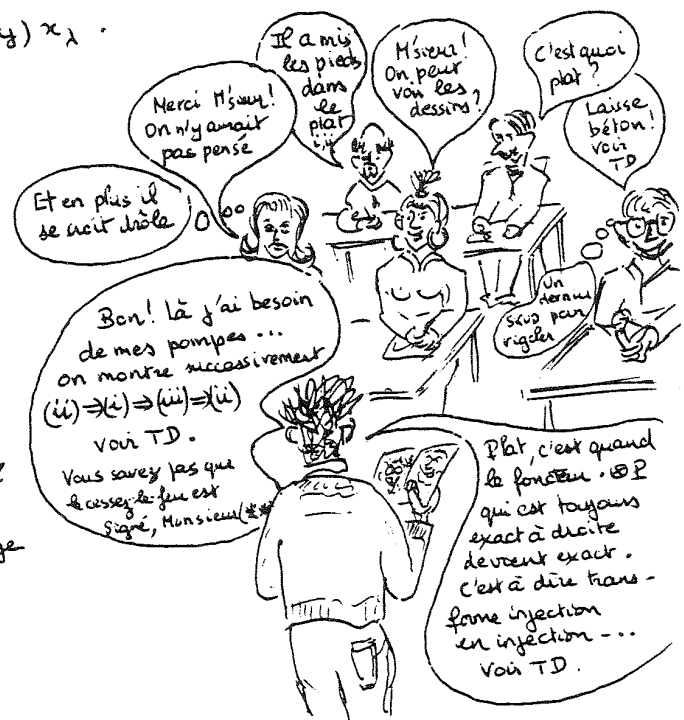 y) xλ .
Il a mis
les pieds
dans
le
plat
M'sieur!
On peut
voir les
dessins?
C'est quoi
plat ?
Merci M'sieur!
On n'y aurait
pas pensé
Laisse
béton!
voir
TD
Et en plus il
se croit drôle
Un
dernier
sous pour
rigoler
Bon! Là j'ai besoin
de mes pompes ...
on montre successivement
(ii)⇒(i)⇒(iii)⇒(ii)
voir TD.
Vous savez pas que
le cessez-le-feu est
signé, Monsieur(**
ge
Plat, c'est quand
le foncteur . ⊗ P
qui est toujours
exact à droite
devient exact .
C'est à dire trans-
forme injection
en injection -...
Voir TD.